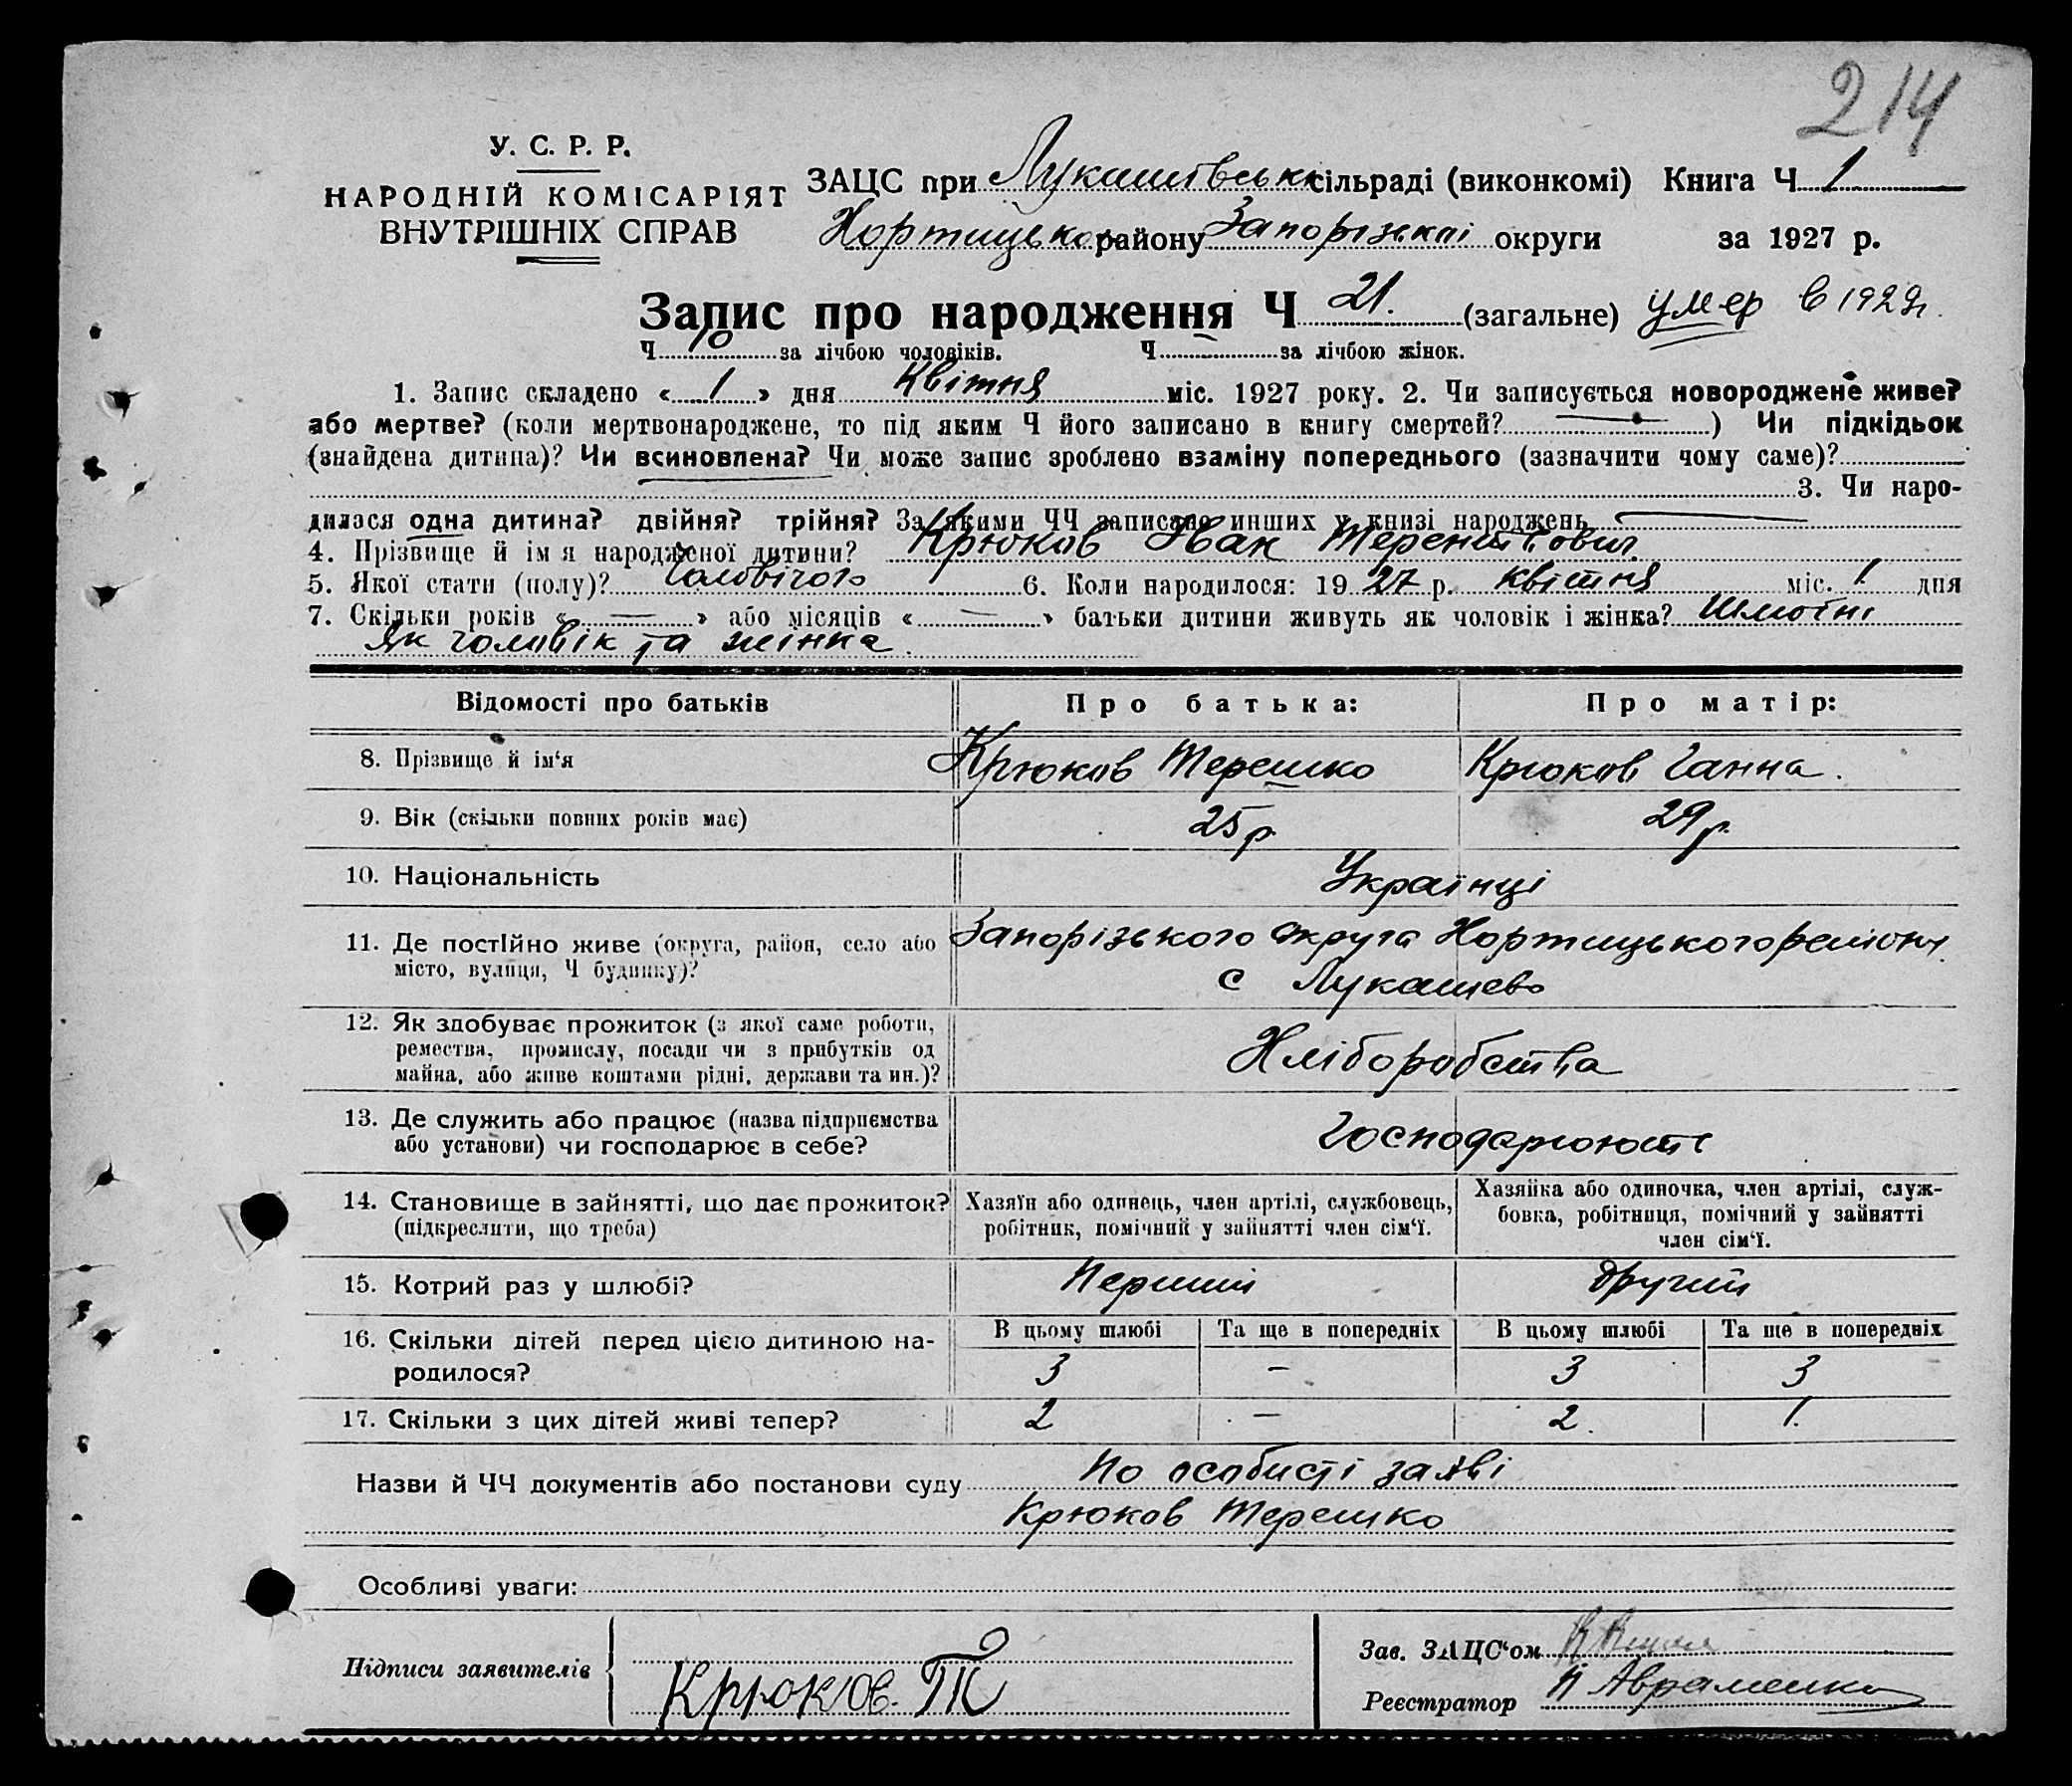 214
У. С. Р. Р.
НАРОДНІЙ КОМІСАРІЯТ
ВНУТРІШНІХ СПРАВ
ЗАЦС при Лукашівській сільраді (виконкомі) Книга Ч 1
Хортицького району Запорізької округи за 1927 р.
Запис про народження Ч 21. (загальне) умер в 1929 г.
Ч 10 за лічбою чоловіків. Ч — за лічбою жінок.
1. Запис складено « 1 » дня Квітня міс. 1927 року. 2. Чи записується новороджене живе?
або мертве? (коли мертвонароджене, то під яким Ч його записано в книгу смертей? — ) Чи підкідьок
(знайдена дитина)? Чи всиновлена? Чи може запис зроблено взаміну попереднього (зазначити чому саме)?
3. Чи наро-
дилася одна дитина? двійня? трійня? За якими ЧЧ записано инших у книзі народжень —
4. Прізвище й ім'я народженої дитини? Крюков Іван Терентьович
5. Якої стати (полу)? Чоловічого 6. Коли народилося: 1927 р. квітня міс. 1 дня
7. Скільки років « — » або місяців « — » батьки дитини живуть як чоловік і жінка?
як чоловік та жінка.
Відомості про батьків Про батька: Про матір:
8. Прізвище й ім'я Крюков Терешко Крюков Ганна.
9. Вік (скільки повних років має) 25 р 29 р.
10. Національність Українці
11. Де постійно живе (округа, район, село або Запорізького округа Хортицького району
місто, вулиця, Ч будинку)? с Лукашево
12. Як здобуває прожиток (з якої саме роботи,
ремества, промислу, посади чи з прибутків од Хліборобства
майна, або живе коштами рідні, держави та ин.)?
13. Де служить або працює (назва підприємства Господарюють
або установи) чи господарює в себе?
14. Становище в зайнятті, що дає прожиток? Хазяїн або одинець, член артілі, службовець, Хазяйка або одиночка, член артілі, служ-
(підкреслити, що треба) робітник, помічний у зайнятті член сім'ї. бовка, робітниця, помічний у зайнятті
член сім'ї.
15. Котрий раз у шлюбі? Перший Другий
16. Скільки дітей перед цією дитиною на- В цьому шлюбі Та ще в попередніх В цьому шлюбі Та ще в попередніх
родилося? 3 — 3 3
17. Скільки з цих дітей живі тепер? 2 — 2. 1.
Назви й ЧЧ документів або постанови суду По особисті заяві
Крюков Терешко
Особливі уваги:
Зав. ЗАЦС'ом
Підписи заявителів Крюков. Т
Реєстратор Авраменко